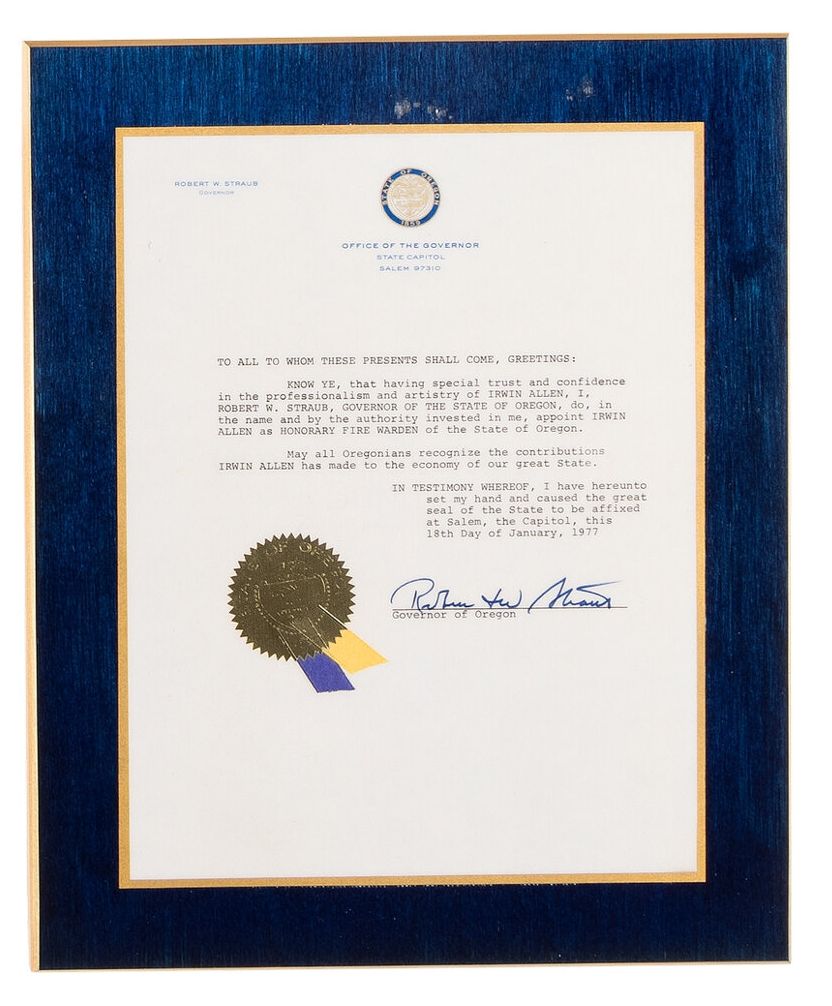 ROBERT W. STRAUB
GOVERNOR
STATE OF OREGON
1859
OFFICE OF THE GOVERNOR
STATE CAPITOL
SALEM 97310
TO ALL TO WHOM THESE PRESENTS SHALL COME, GREETINGS:
KNOW YE, that having special trust and confidence
in the professionalism and artistry of IRWIN ALLEN, I,
ROBERT W. STRAUB, GOVERNOR OF THE STATE OF OREGON, do, in
the name and by the authority invested in me, appoint IRWIN
ALLEN as HONORARY FIRE WARDEN of the State of Oregon.
May all Oregonians recognize the contributions
IRWIN ALLEN has made to the economy of our great State.
IN TESTIMONY WHEREOF, I have hereunto
set my hand and caused the great
seal of the State to be affixed
at Salem, the Capitol, this
18th Day of January, 1977
STATE OF OREGON
Robert W Straub
Governor of Oregon